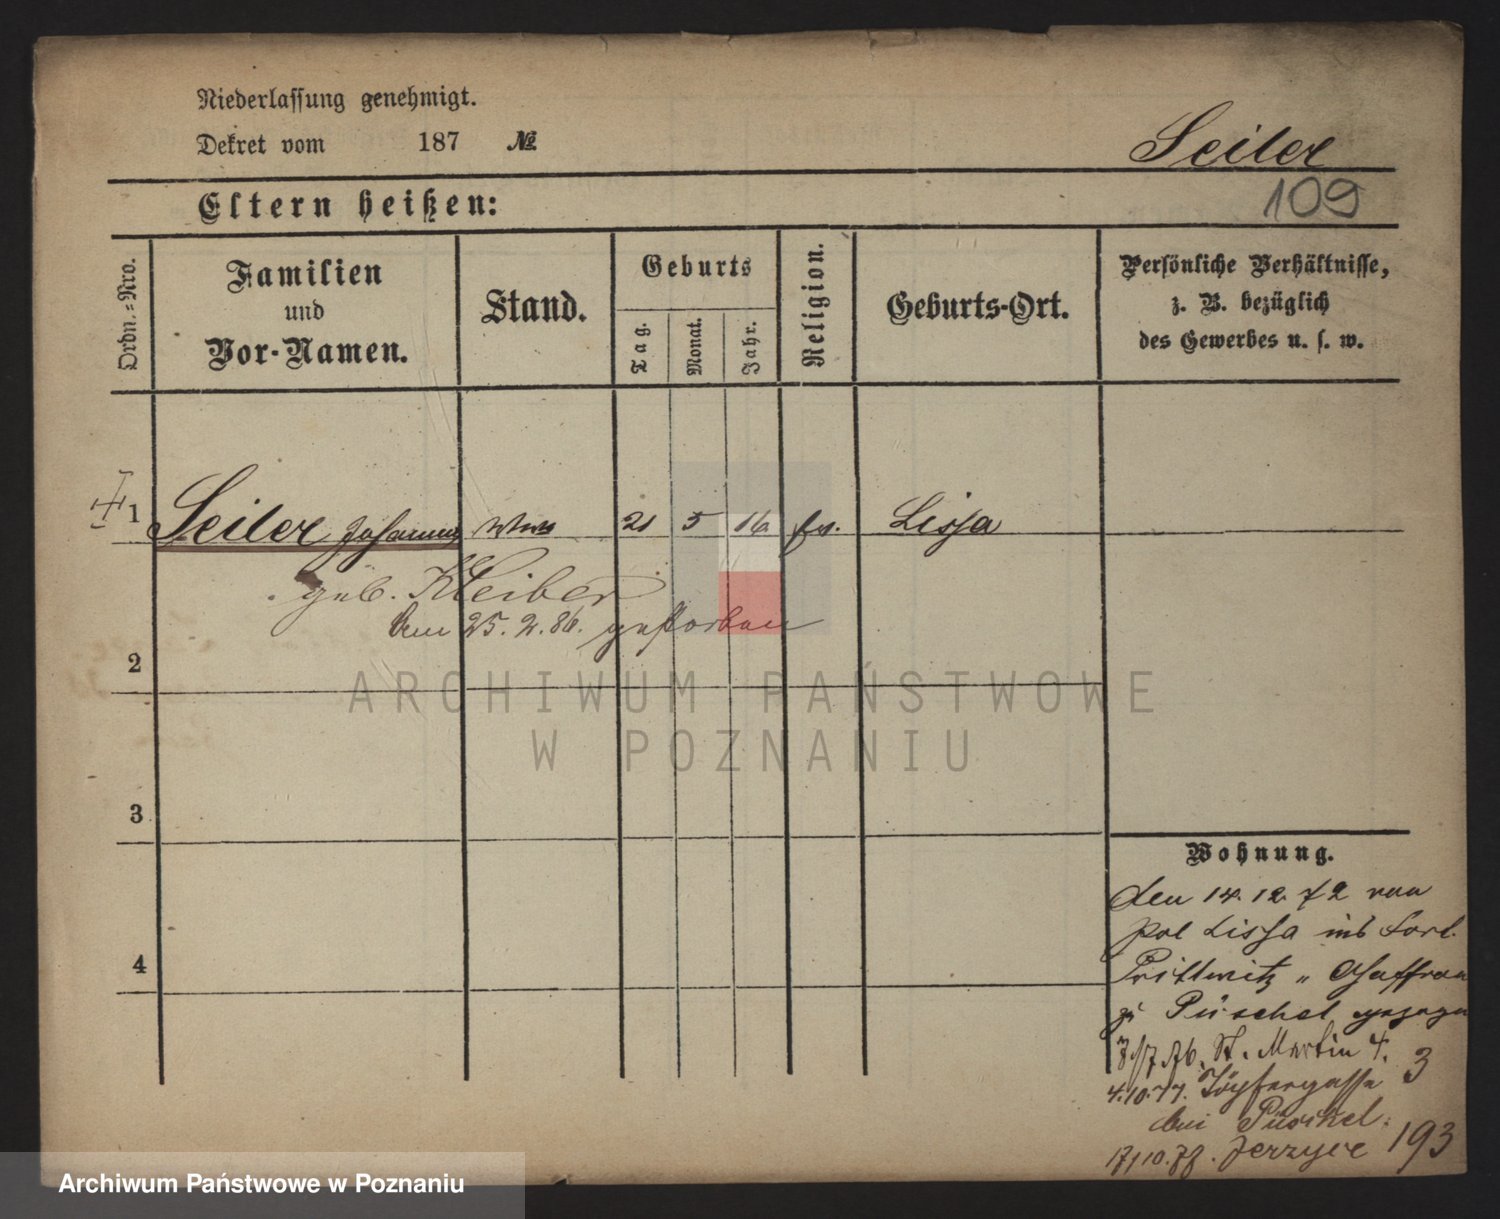 Niederlassung genehmigt.
Dekret vom 187 №
Seiler
Eltern heißen:
109
Ordn.-Nro.
Familien
und
Vor-Namen.
Stand.
Geburts
Tag.
Monat.
Jahr.
Religion.
Geburts-Ort.
Persönliche Verhältnisse,
z. B. bezüglich
des Gewerbes u. s. w.
1 Seiler Johanna Wwe 21 5 16 ev. Lissa
geb. Kleiber
den 25. 2. 86. gestorben
2
ARCHIWUM PAŃSTWOWE
W POZNANIU
3
4
Wohnung.
den 14. 12. 72 von
Poln Lissa ins Fort
Prittwitz
zu Püschel gezogen
3/7. 76. St. Martin 4.
4. 10. 77. Töpfergasse 3
bei Püschel.
17/10. 78. Jerzyce 193
Archiwum Państwowe w Poznaniu